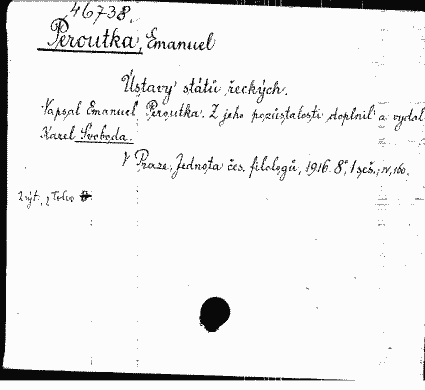 46738.
Peroutka, Emanuel
Ústavy států řeckých.
Napsal Emanuel Peroutka. Z jeho pozůstalosti doplnil a vydal
Karel Svoboda.
V Praze, Jednota čes. filologů, 1916. 8°, 1 seš., IV, 160.
2 výt.,